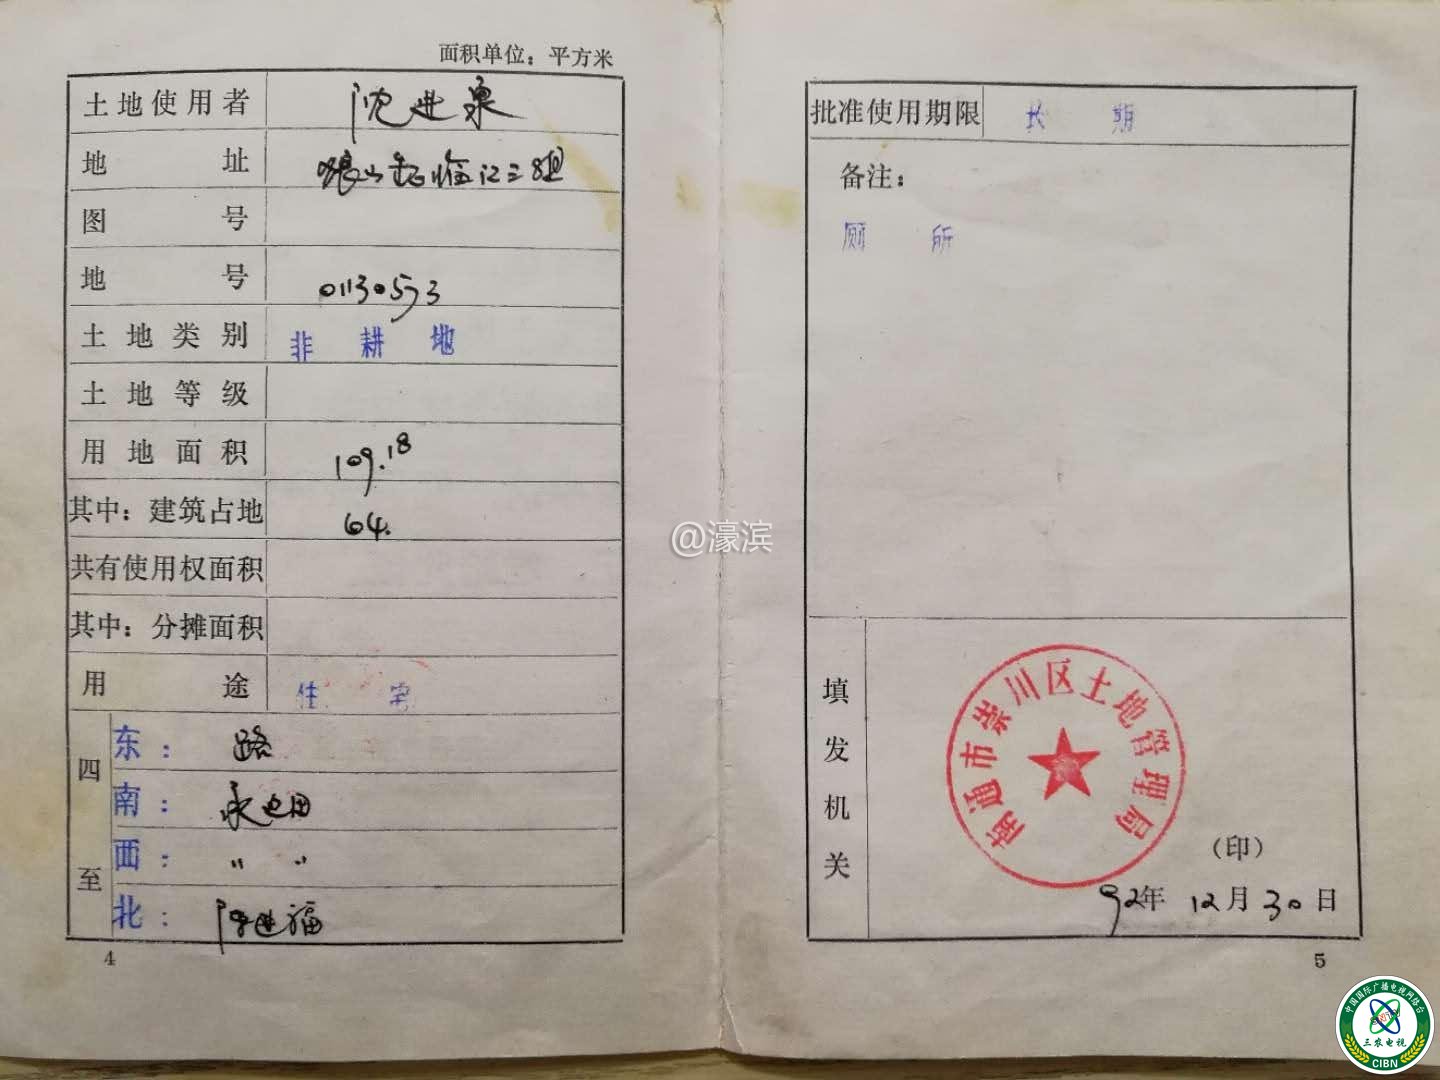 面积单位：平方米
土地使用者 沈进泉
地址 狼山镇临江三组
图号
地号 01130573
土地类别 非耕地
土地等级
用地面积 109.18
其中：建筑占地 64.
共有使用权面积
其中：分摊面积
用途 住宅
四至
东： 路
南：
西： 〃 〃
北： 进福
4
批准使用期限 长期
备注：
厕所
填发机关
南通市崇川区土地管理局
（印）
92年12月30日
5
@濠滨
中国国际广播电视网络台
三农电视
CIBN